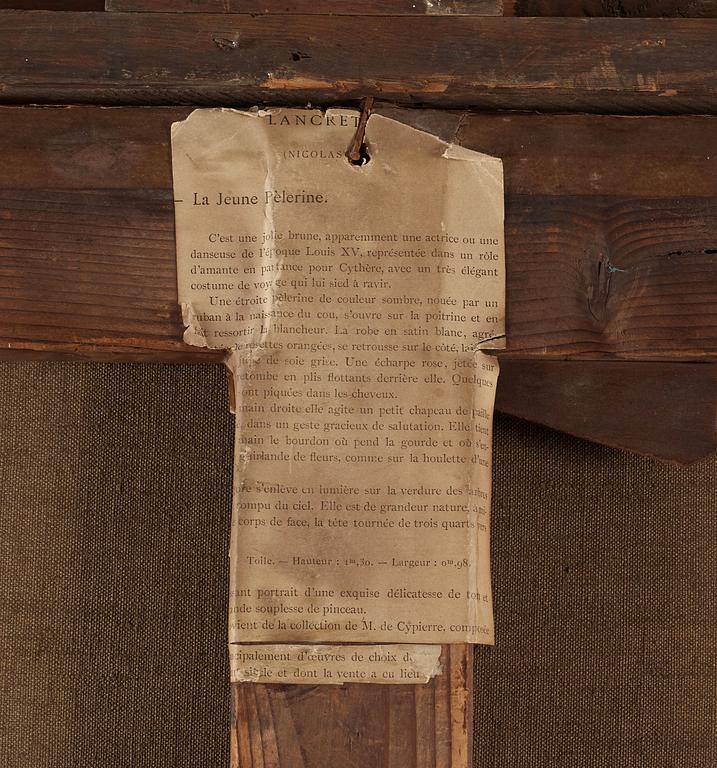 LANCRET
(NICOLAS
— La Jeune Pèlerine.
C'est une jolie brune, apparemment une actrice ou une
danseuse de l'époque Louis XV, représentée dans un rôle
d'amante en partance pour Cythère, avec un très élégant
costume de voyage qui lui sied à ravir.
Une étroite pèlerine de couleur sombre, nouée par un
ruban à la naissance du cou, s'ouvre sur la poitrine et en
fait ressortir la blancheur. La robe en satin blanc, agré-
rosettes orangées, se retrousse sur le côté,
jupe de soie grise. Une écharpe rose, jetée sur
retombe en plis flottants derrière elle. Quelques
sont piquées dans les cheveux.
main droite elle agite un petit chapeau de paille
dans un geste gracieux de salutation. Elle tient
main le bourdon où pend la gourde et où s'en-
guirlande de fleurs, comme sur la houlette d'une
s'enlève en lumière sur la verdure des arbres
rompu du ciel. Elle est de grandeur nature, à mi-
corps de face, la tête tournée de trois quarts vers
Toile. — Hauteur : 1m,30. — Largeur : 0m,98.
sant portrait d'une exquise délicatesse de ton et
nde souplesse de pinceau.
vient de la collection de M. de Cypierre, composée
cipalement d'œuvres de choix
siècle et dont la vente a eu lieu